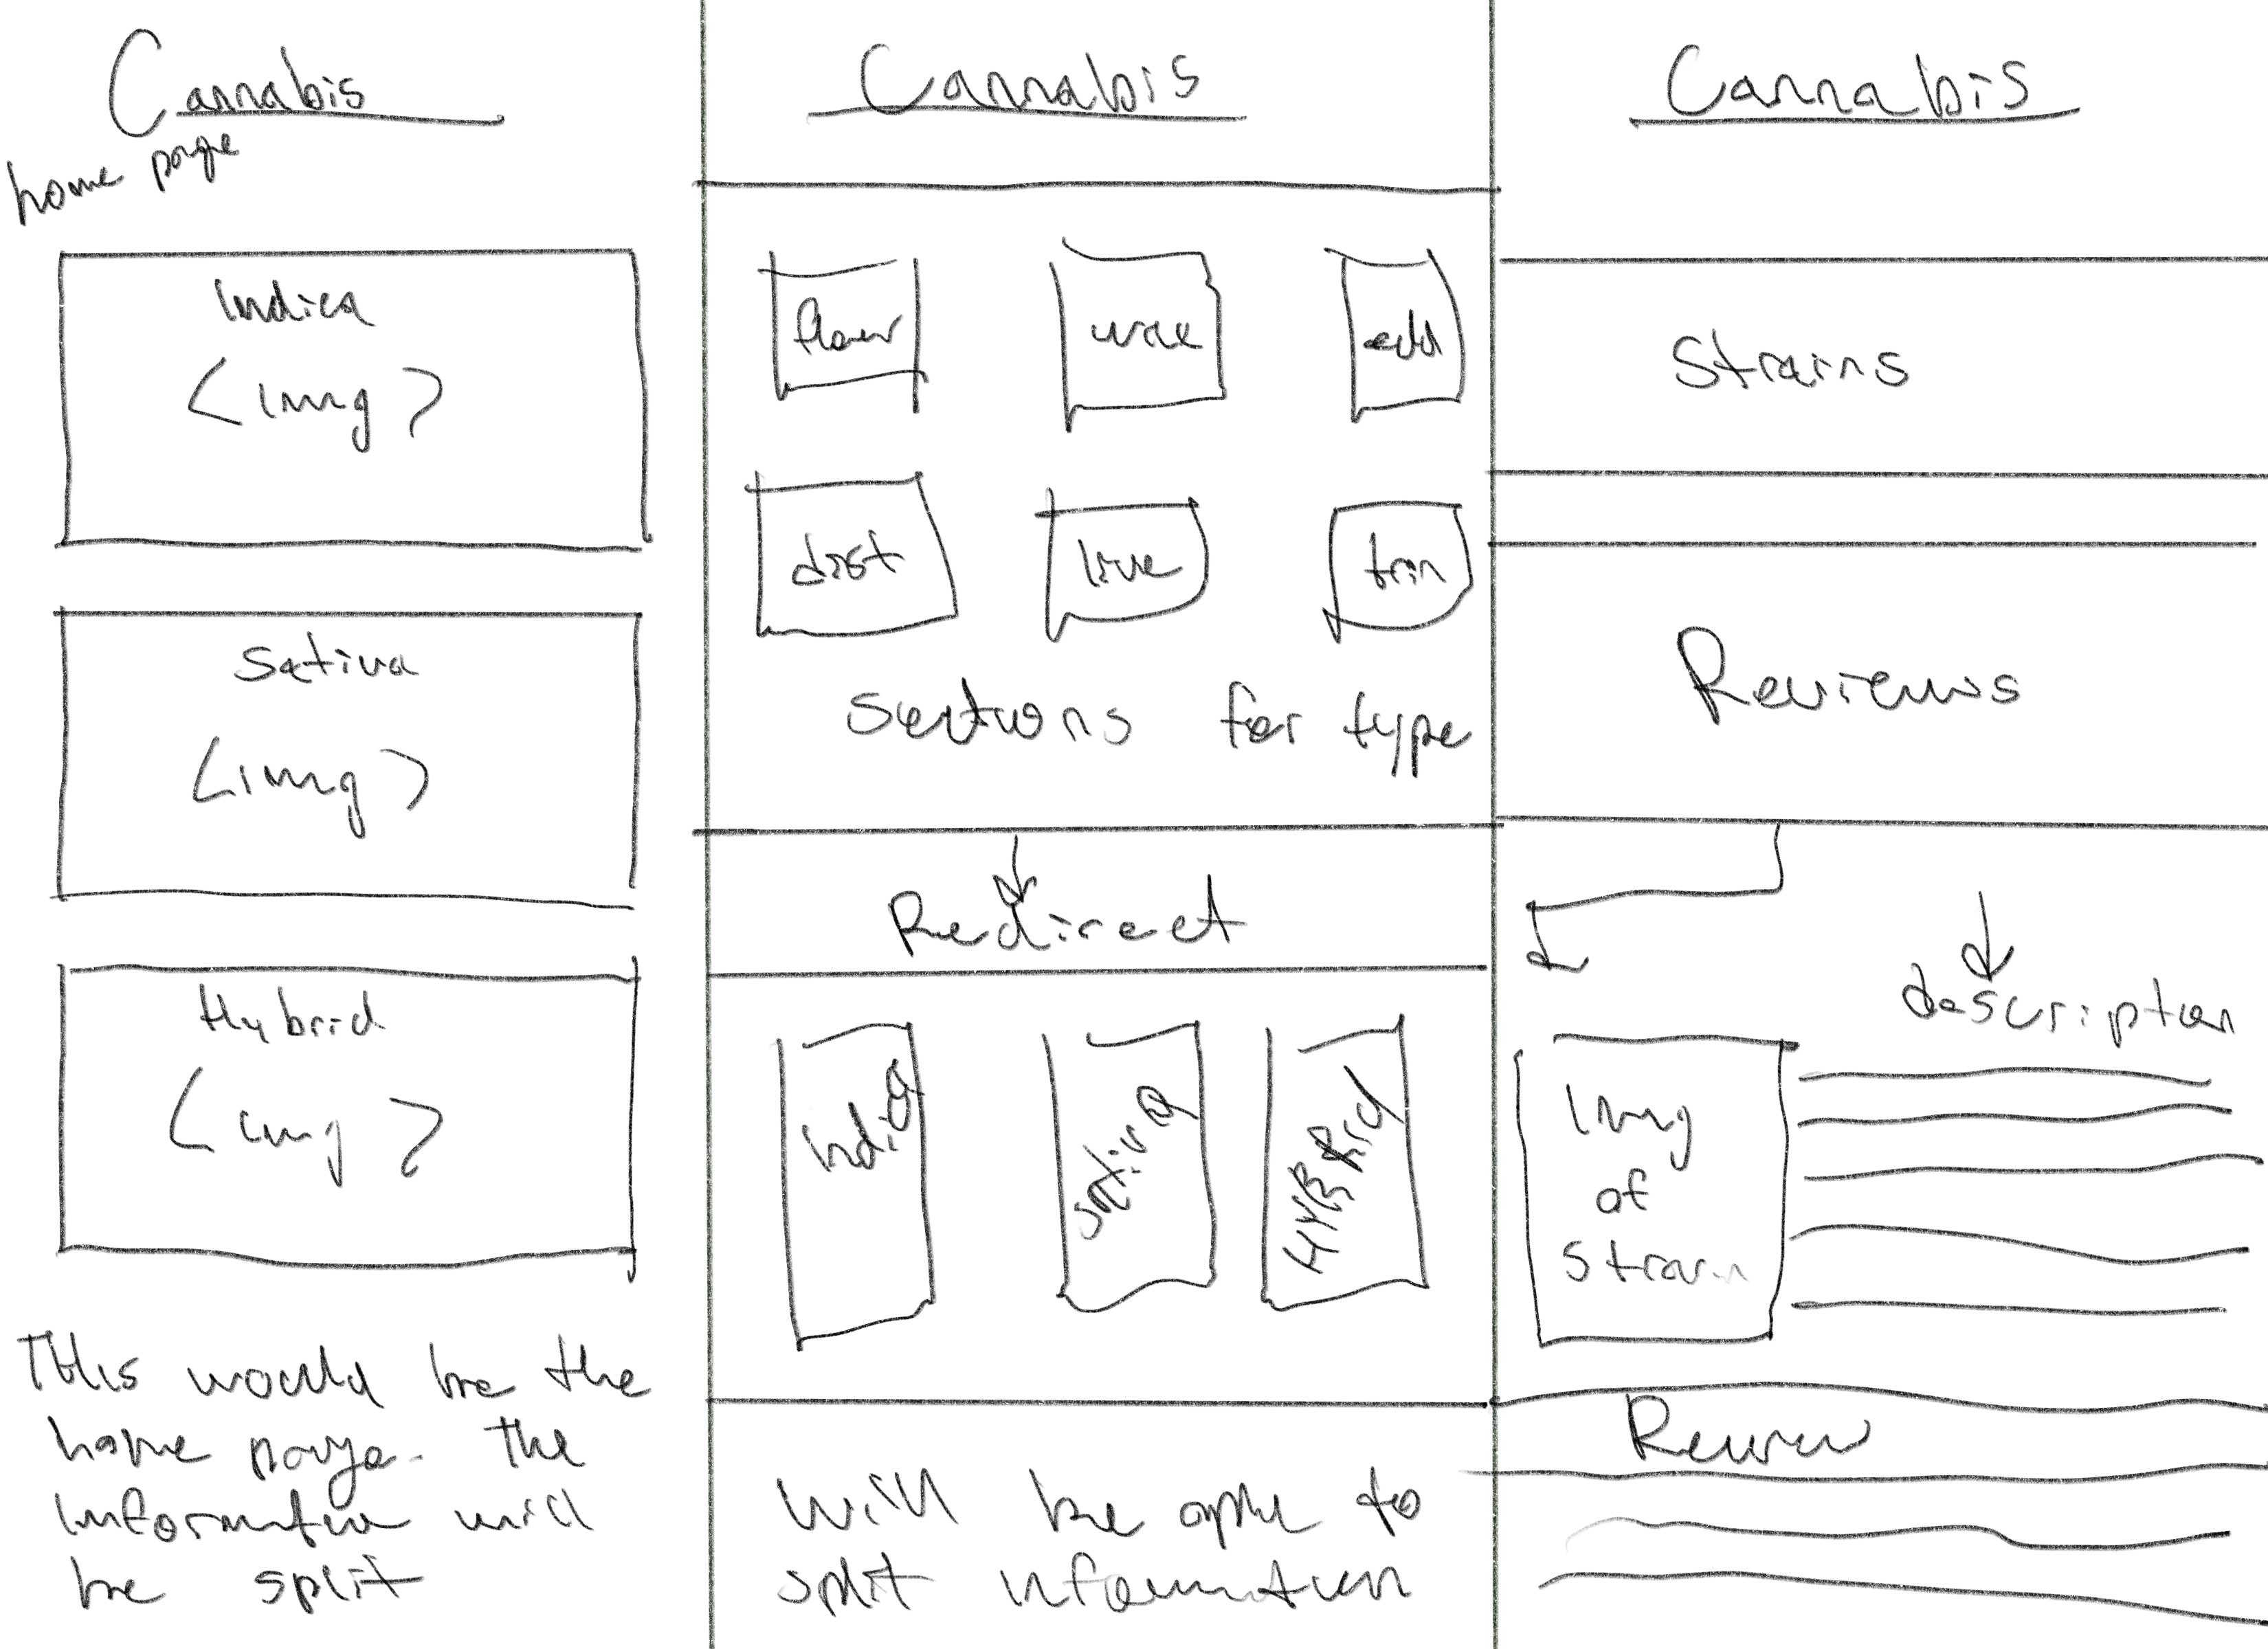 Cannabis
home page
Indica
<img>
Sativa
<img>
Hybrid
<img>
This would be the
home page. The
information will
be split
Cannabis
flower wax edd
dist live trin
sections for type
Redirect
Indica Sativa HYBRid
will be able to
split information
Cannabis
Strains
Reviews
description
Img
of
Strain
Review